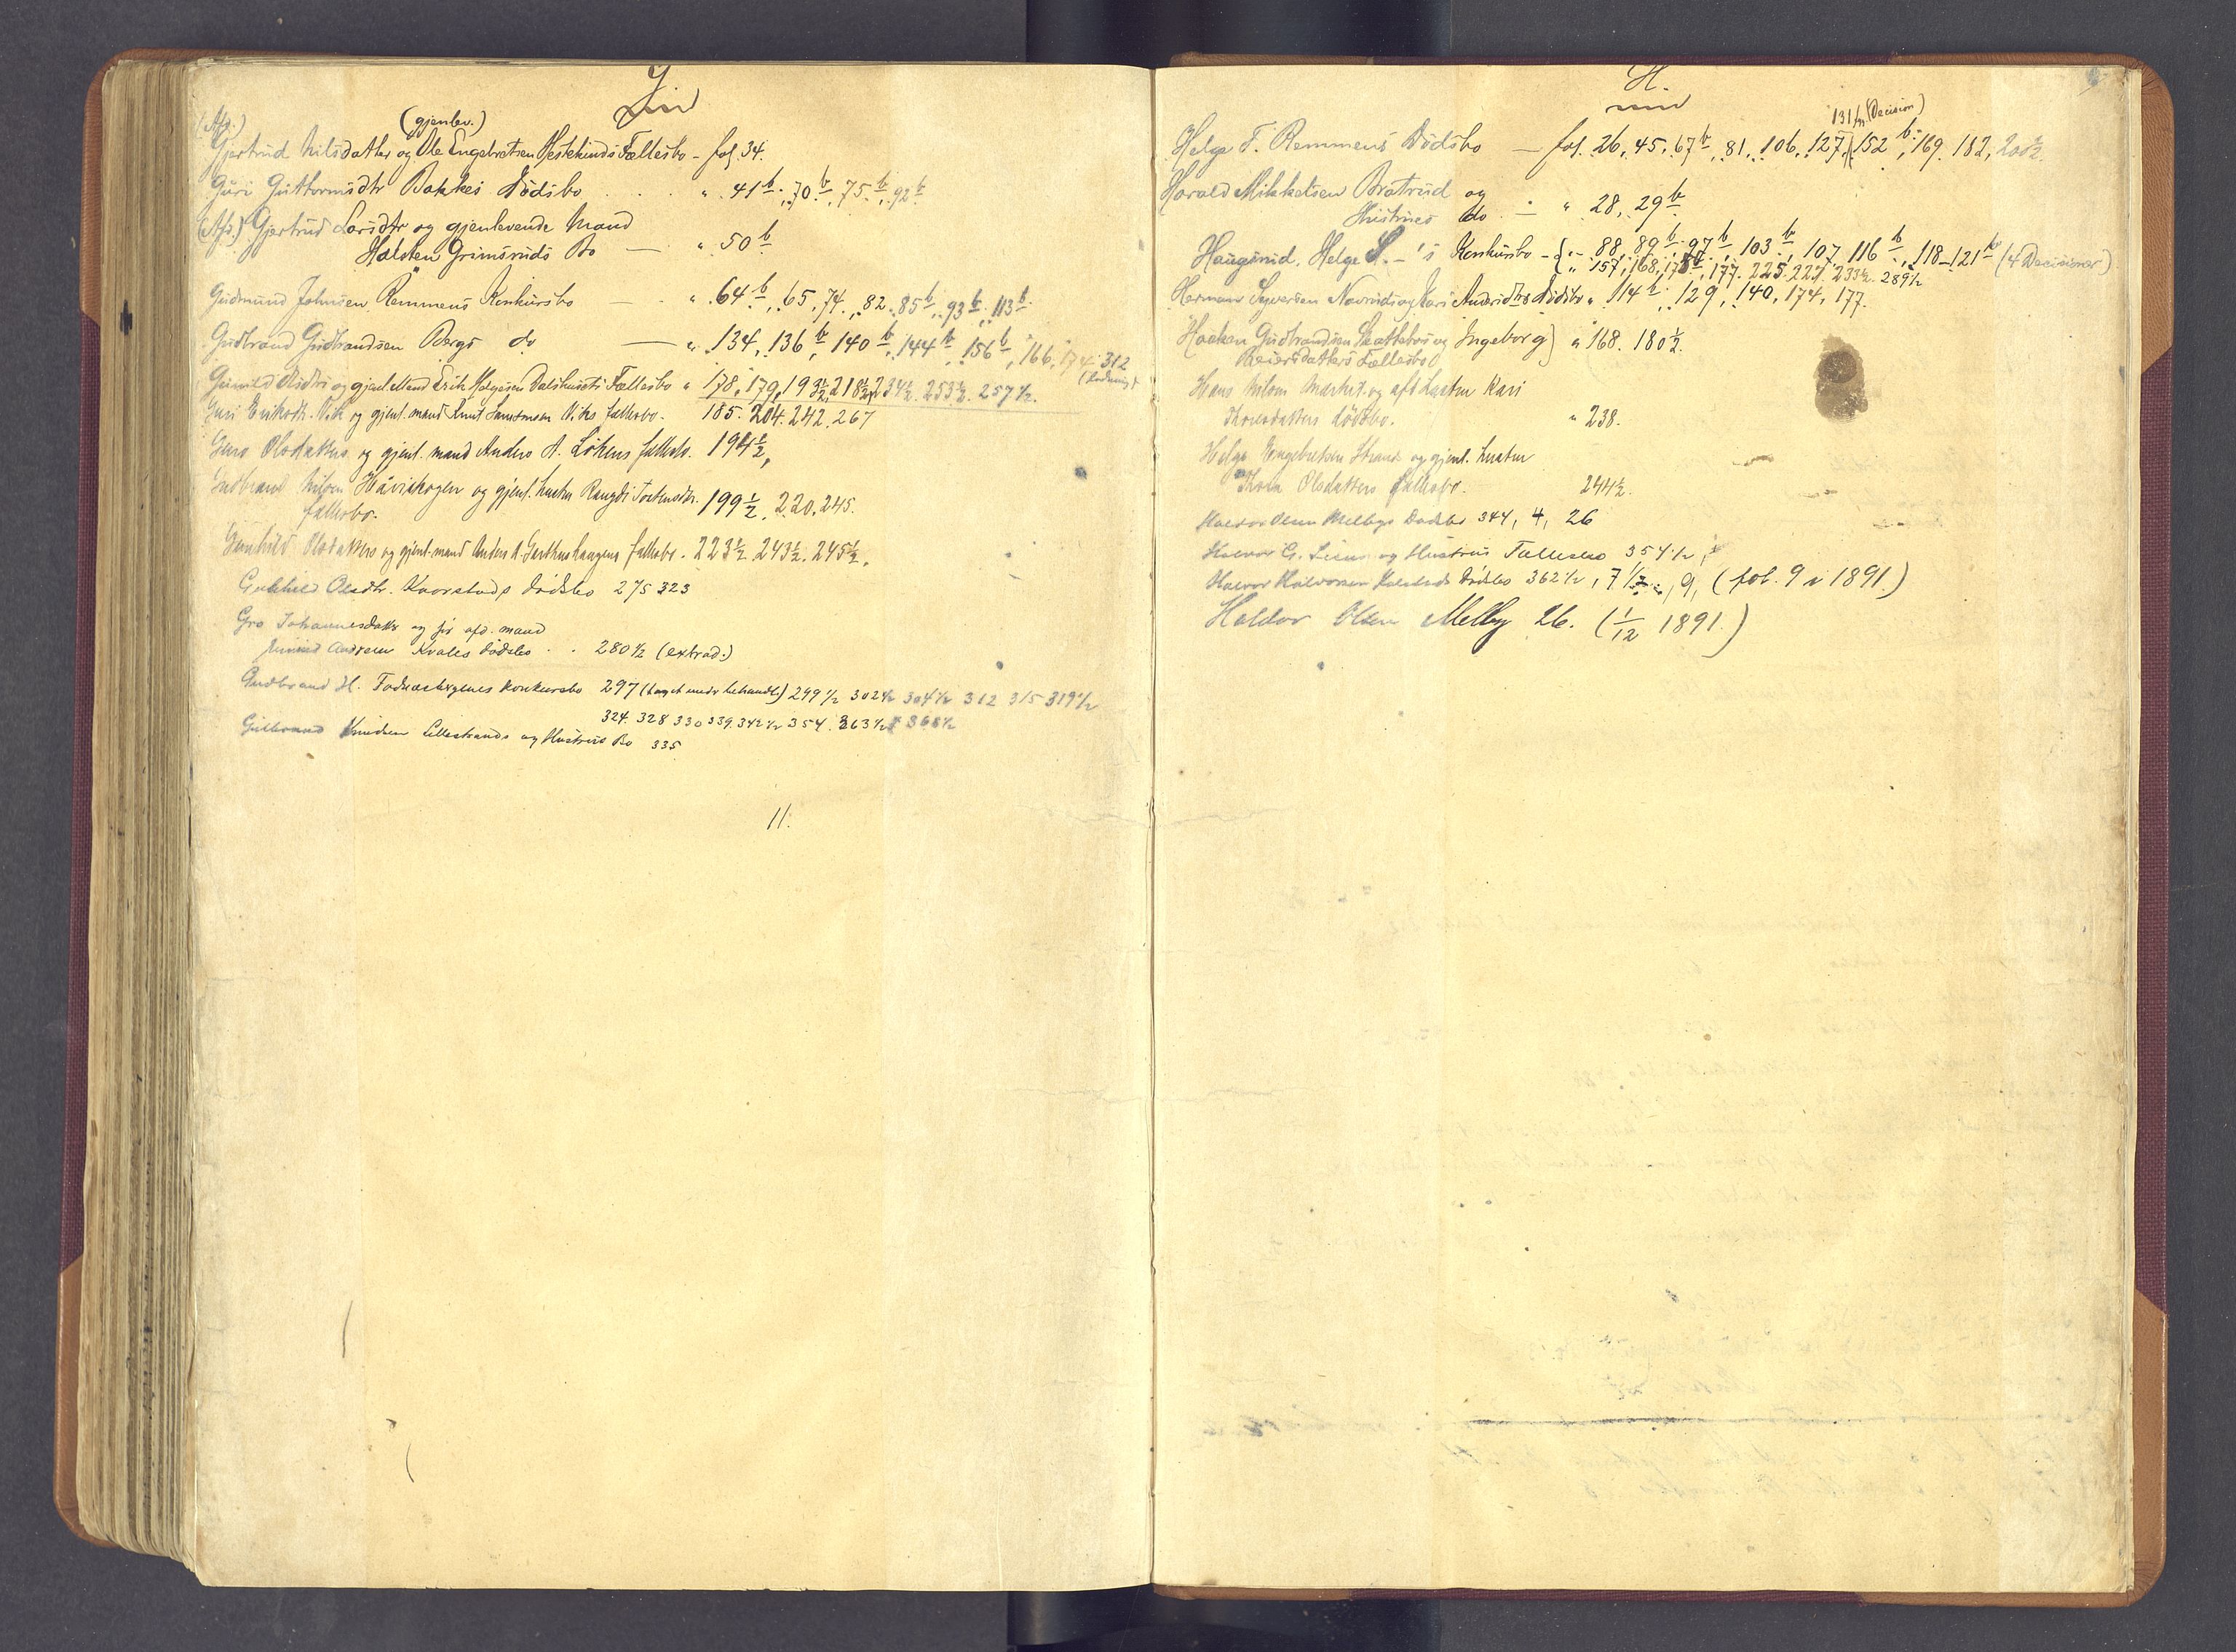 G
(Afd.) (gjenlev.)
Gjertrud Nilsdatter og Ole Engebretsen Hesteliinds Fællesbo - fol. 34.
Guri Guthormsdtr Bakkes Dödsbo " 41 b, 70 b, 75 b, 92 b
(Afd.) Gjertrud Larsdtr og gjenlevende Mand
Halsten Grimsruds Bo — " 50 b
Gudmund Johnsen Rommens Konkursbo — " 64 b, 65, 74, 82, 85 b, 93 b, 113 b
Gudbrand Gudbrandsen Bergs do — " 134, 136 b, 140 b, 144 b, 156 b, 166, 174, 312
Gunild Olsdtrs og gjenl. Mand Erik Helgesen Fællesbo " 178, 179, 193½, 218½, 234½. 253½. 257½.
Guri Eriksdtr. Vik og gjenl. mand Knut Viks fællesbo. 185. 204. 242. 267
Olsdatters og gjenl. mand Anders A. Lökens fællesb. 194½,
Gudbrand Nilsen Håvikogen og gjenl. hustru Rangdi
fællesbo. 199½, 220. 245.
Gunhild Olsdatters og gjenl. mand Anders A. fællesbo. 223½ 243½. 245½.
Gunhild Olsdtr. Kaarstads dödsbo 275 323
Gro Johannesdatter og før afd. mand
Andersen Kvales dödsbo . . 280½ (extrad.)
Gudbrand H. konkursbo 297 (taget under behandl.) 299½ 302½ 304½ 312 315 319½
324. 328 330 339. 342½ 354. 363½ 368½
Gulbrand Knudsen Lillestrands og Hustrus Bo 335
11.
H.
131 (Decision)
Helge T. Rommens Dödsbo — fol. 26, 45, 67 b, 81, 106, 127, 152 b, 169. 182, 200½.
Harald Mikkelsen Bratrud og
Hustrues do — " 28, 29 b
Haugsrud, Helge S. – 's Konkursbo – " 88, 89 b, 97 b, 103 b, 107, 116 b, 118–121 b (4 Decisioner)
" 157, 168, 175 b, 177. 225. 227. 233½. 289½
Herman Syversen og Kari Andersdtrs Dödsbo " 114 b, 129, 140, 174, 177.
Haaken Gudbrandsen og Ingeborg " 168. 180½.
Reiersdatters Fællesbo
Hans Nilsen og afd. hustru Kari
dödsbo. " 238.
Helge Engebretsen Strand og gjenl. hustru
Olsdatters fællesbo. 244½.
Haldor Olsen Melbys Dødsbo 344, 4, 26
Halvor G. og Hustrus Fællesbo 354½,
Halvor Halvorsen dødsbo 362½, 7½, 9, (fol. 9 i 1891.)
Haldor Olsen Melby 26. (1/12 1891.)